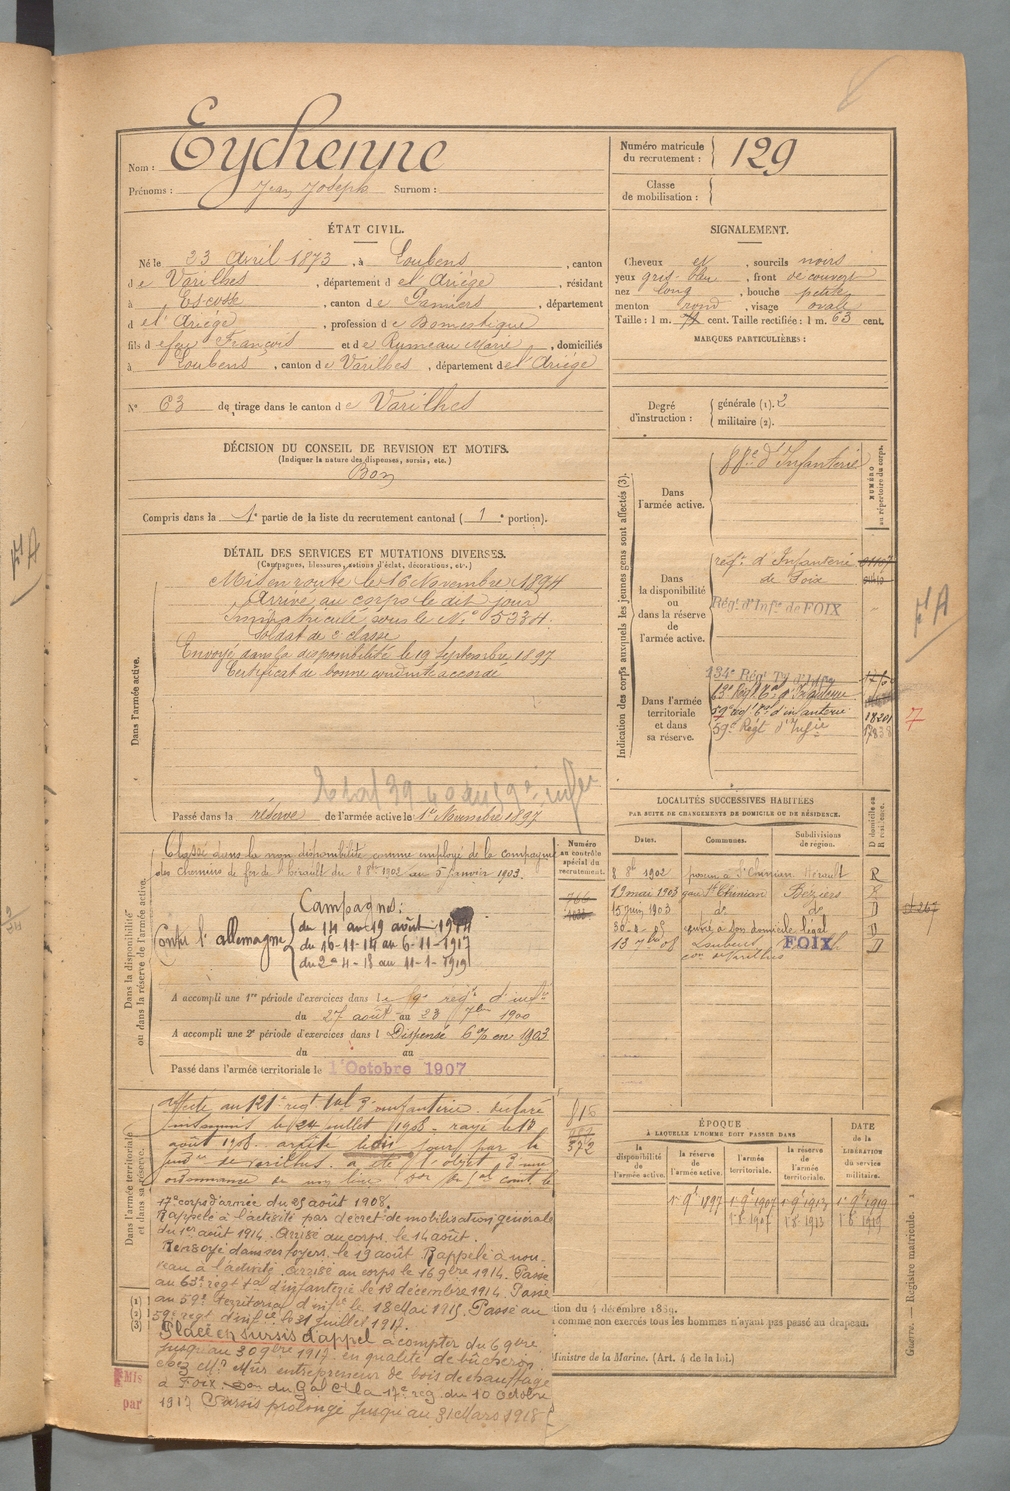 Nom : Eychenne
Prénoms : Jean Joseph Surnom :
Numéro matricule du recrutement : 129
Classe de mobilisation :
ÉTAT CIVIL.
Né le 23 Avril 1873, à Loubens, canton
de Varilhes, département de l'Ariège, résidant
à Escosse, canton de Pamiers, département
de l'Ariège, profession de Domestique
fils de feu François et de Rumeau Marie, domiciliés
à Loubens, canton de Varilhes, département de l'Ariège
N° 63 de tirage dans le canton de Varilhes
SIGNALEMENT.
Cheveux et, sourcils noirs
yeux gris-bleu, front découvert
nez long, bouche petite
menton rond, visage ovale
Taille : 1 m. 71 cent. Taille rectifiée : 1 m. 63 cent.
MARQUES PARTICULIÈRES :
Degré d'instruction : générale (1). 2
militaire (2).
DÉCISION DU CONSEIL DE REVISION ET MOTIFS.
(Indiquer la nature des dispenses, sursis, etc.)
Bon
Compris dans la 1e partie de la liste du recrutement cantonal ( 1e portion).
DÉTAIL DES SERVICES ET MUTATIONS DIVERSES.
(Campagnes, blessures, actions d'éclat, décorations, etc.)
Dans l'armée active.
Mis en route le 16 Novembre 1894
Arrivé au corps le dit jour
Immatriculé sous le N° 5384.
Soldat de 2e classe
Envoyé dans la disponibilité le 19 Septembre 1897
Certificat de bonne conduite accordé
Passé dans la réserve de l'armée active le 1er Novembre 1897
Indication des corps auxquels les jeunes gens sont affectés (3).
NUMÉRO au répertoire du corps.
Dans l'armée active.
88e d'Infanterie
Dans la disponibilité ou dans la réserve de l'armée active.
régt d'Infanterie
de Foix
Régt d'Infie de FOIX
Dans l'armée territoriale et dans sa réserve.
134e Régt Tal d'Infie
63e Régt Tal d'Infanterie
59e régt Tal d'infanterie 18201
59e Régt d'Infie
7
Dans la disponibilité ou dans la réserve de l'armée active.
Classé dans la non disponibilité comme employé de la compagnie
des chemins de fer de l'Hérault du 8 8bre 1902 au 5 janvier 1903.
Numéro au contrôle spécial du recrutement.
Campagnes :
Contre l'allemagne
du 14 au 19 août 1914
du 16-11-14 au 6-11-1917
du 2-4-18 au 11-1-1919
A accompli une 1re période d'exercices dans le 59e régt d'infie
du 27 août au 23 7bre 1900
A accompli une 2e période d'exercices dans l Dispensé 6% en 1903
du au
Passé dans l'armée territoriale le 1er Octobre 1907
LOCALITÉS SUCCESSIVES HABITÉES
PAR SUITE DE CHANGEMENTS DE DOMICILE OU DE RÉSIDENCE.
Dates. Communes. Subdivisions de région. D domicile ou R résidence.
8 8bre 1902 St Chinian Hérault R
19 mai 1903 gare St Chinian Beziers R
15 juin 1903 do do D
rentré à son domicile légal D
13 7bre 08 Loubens FOIX D
con de Varilhes
Dans l'armée territoriale et dans sa réserve.
Affecté au 121e régt Tal d'infanterie. déclaré
insoumis le 24 juillet 1908. rayé le 18
août 1908. arrêté le dit jour par la
gendie de Varilhes. a été l'objet d'une
ordonnance de non lieu Don du Gal comt le
17e corps d'armée du 25 août 1908.
Rappelé à l'activité par décret de mobilisation générale
du 1er août 1914. Arrivé au corps le 14 août.
Renvoyé dans ses foyers le 19 août. Rappelé à nou-
veau à l'activité. Arrivé au corps le 16 9bre 1914. Passé
au 63e régt Tal d'infanterie le 12 décembre 1914. Passé
au 59e territorial d'infie le 18 Mai 1915. Passé au
59e régt d'infie le 31 juillet 1917.
Placé en sursis d'appel à compter du 6 9bre
jusqu'au 30 9bre 1917 en qualité de bûcheron
chez Mr Mür entrepreneur de bois de chauffage
à Foix. Don du Gal Ct la 17e reg. du 10 Octobre
1917 Sursis prolongé jusqu'au 31 Mars 1918
815
372
ÉPOQUE
À LAQUELLE L'HOMME DOIT PASSER DANS
la disponibilité de l'armée active. la réserve de l'armée active. l'armée territoriale. la réserve de l'armée territoriale.
DATE de la LIBÉRATION du service militaire.
1er 9bre 1897 1er 9bre 1907 1er 9bre 1913 1er 9bre 1919
1.8.1907 1.8.1913 1.8.1919
tion du 4 décembre 1889.
comme non exercés tous les hommes n'ayant pas passé au drapeau.
Ministre de la Marine. (Art. 4 de la loi.)
Guerre. — Registre matricule.
Mis
par